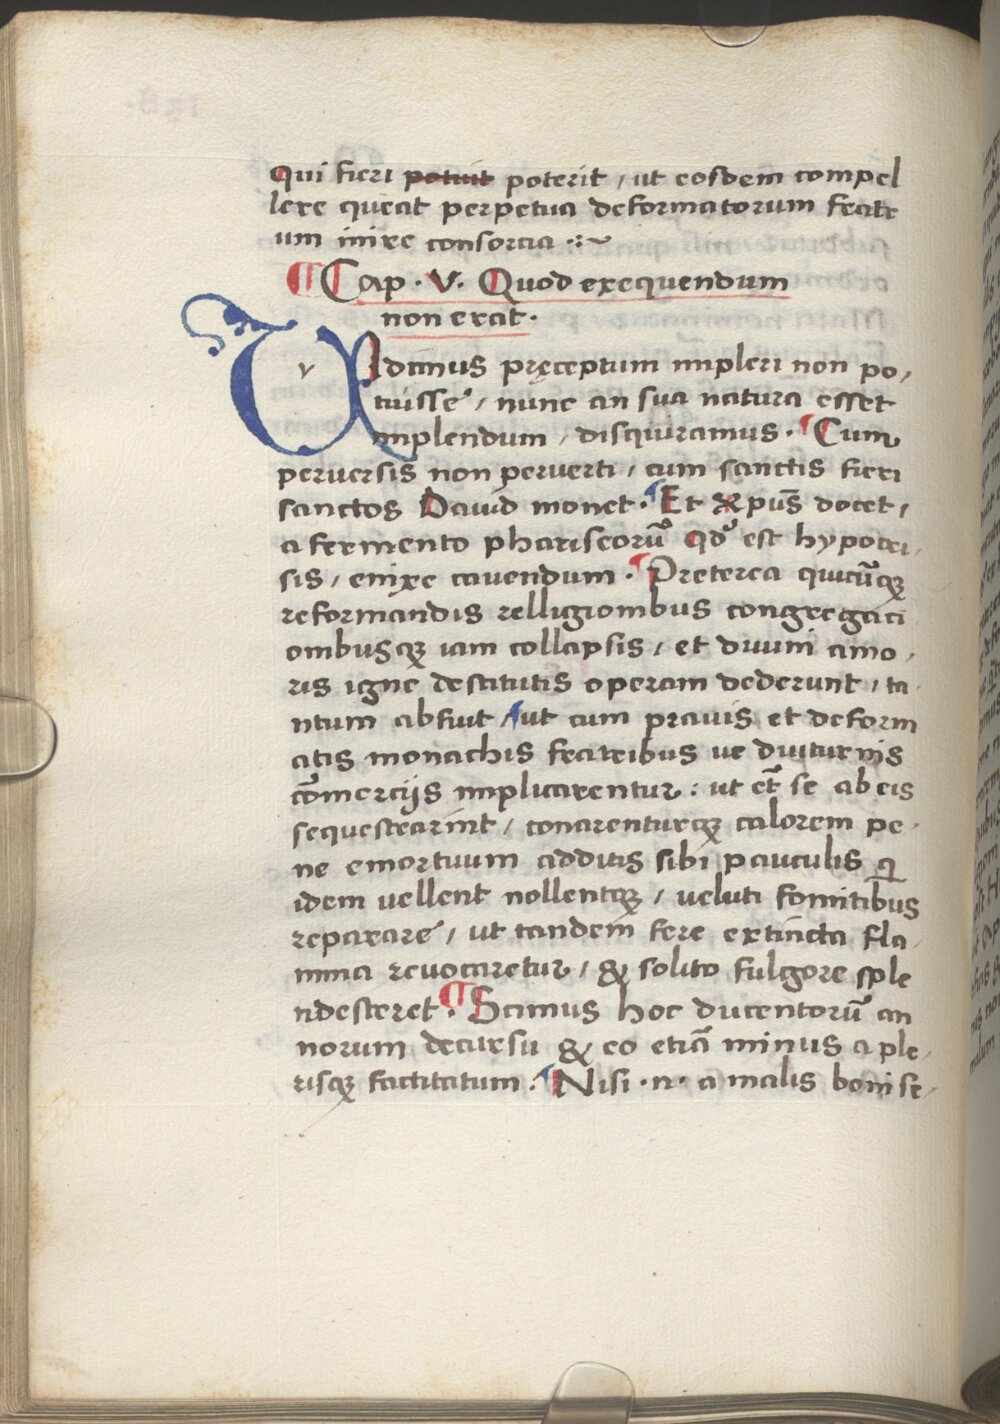 qui fieri potuit poterit / ut eosdem compel
lere queat perpetua deformatorum fratr
um inire consorcia
¶ Cap · V · Quod exequendum
non erat ·
VIdimus pręceptum impleri non po,
tuisse / nunc an sua natura esset
implendum / disquiramus · Cum
perversis non perverti / cum sanctis fieri
sanctos David monet · Et xpūs docet /
a fermento phariseorū qd' est hypocri,
sis / enixe cavendum · Preterea quicūqꝫ
reformandis relligionibus congregaci
onibusqꝫ iam collapsis / et divini amo,
ris igne destitutis operam dederunt / ta
ntum abfuit / ut cum pravis et deform
atis monachis fratribus ve diuturnis
cōmercijs implicarentur : ut et̄ se ab eis
sequestrarint / conarenturqꝫ calorem pe
ne emortuum additis sibi pauculis q̄
idem vellent nollentqꝫ / veluti fomitibus
reparare / ut tandem fere extincta fla
mma revocaretur / & solito fulgore sple
ndesceret · ¶ Scimus hoc ducentorū an
norum decursu & eo etiā minus a ple,
risqꝫ factitatum : Nisi · n · a malis boni se,